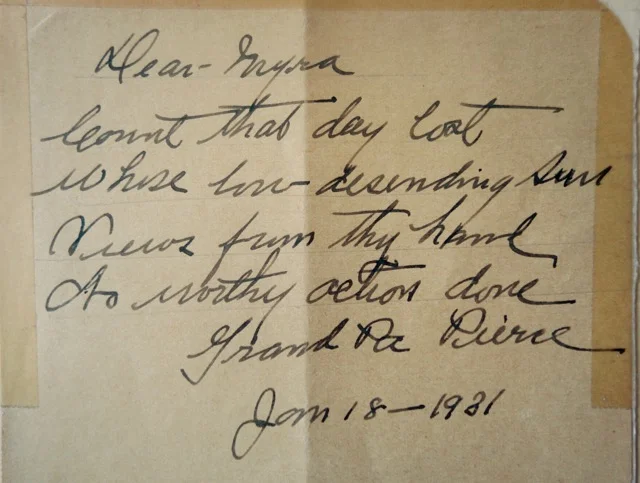 Dear Myra
Count that day lost
Whose low desending sun
Views from thy hand
No worthy action done
Grand Pa Pierce
Jan 18 - 1931